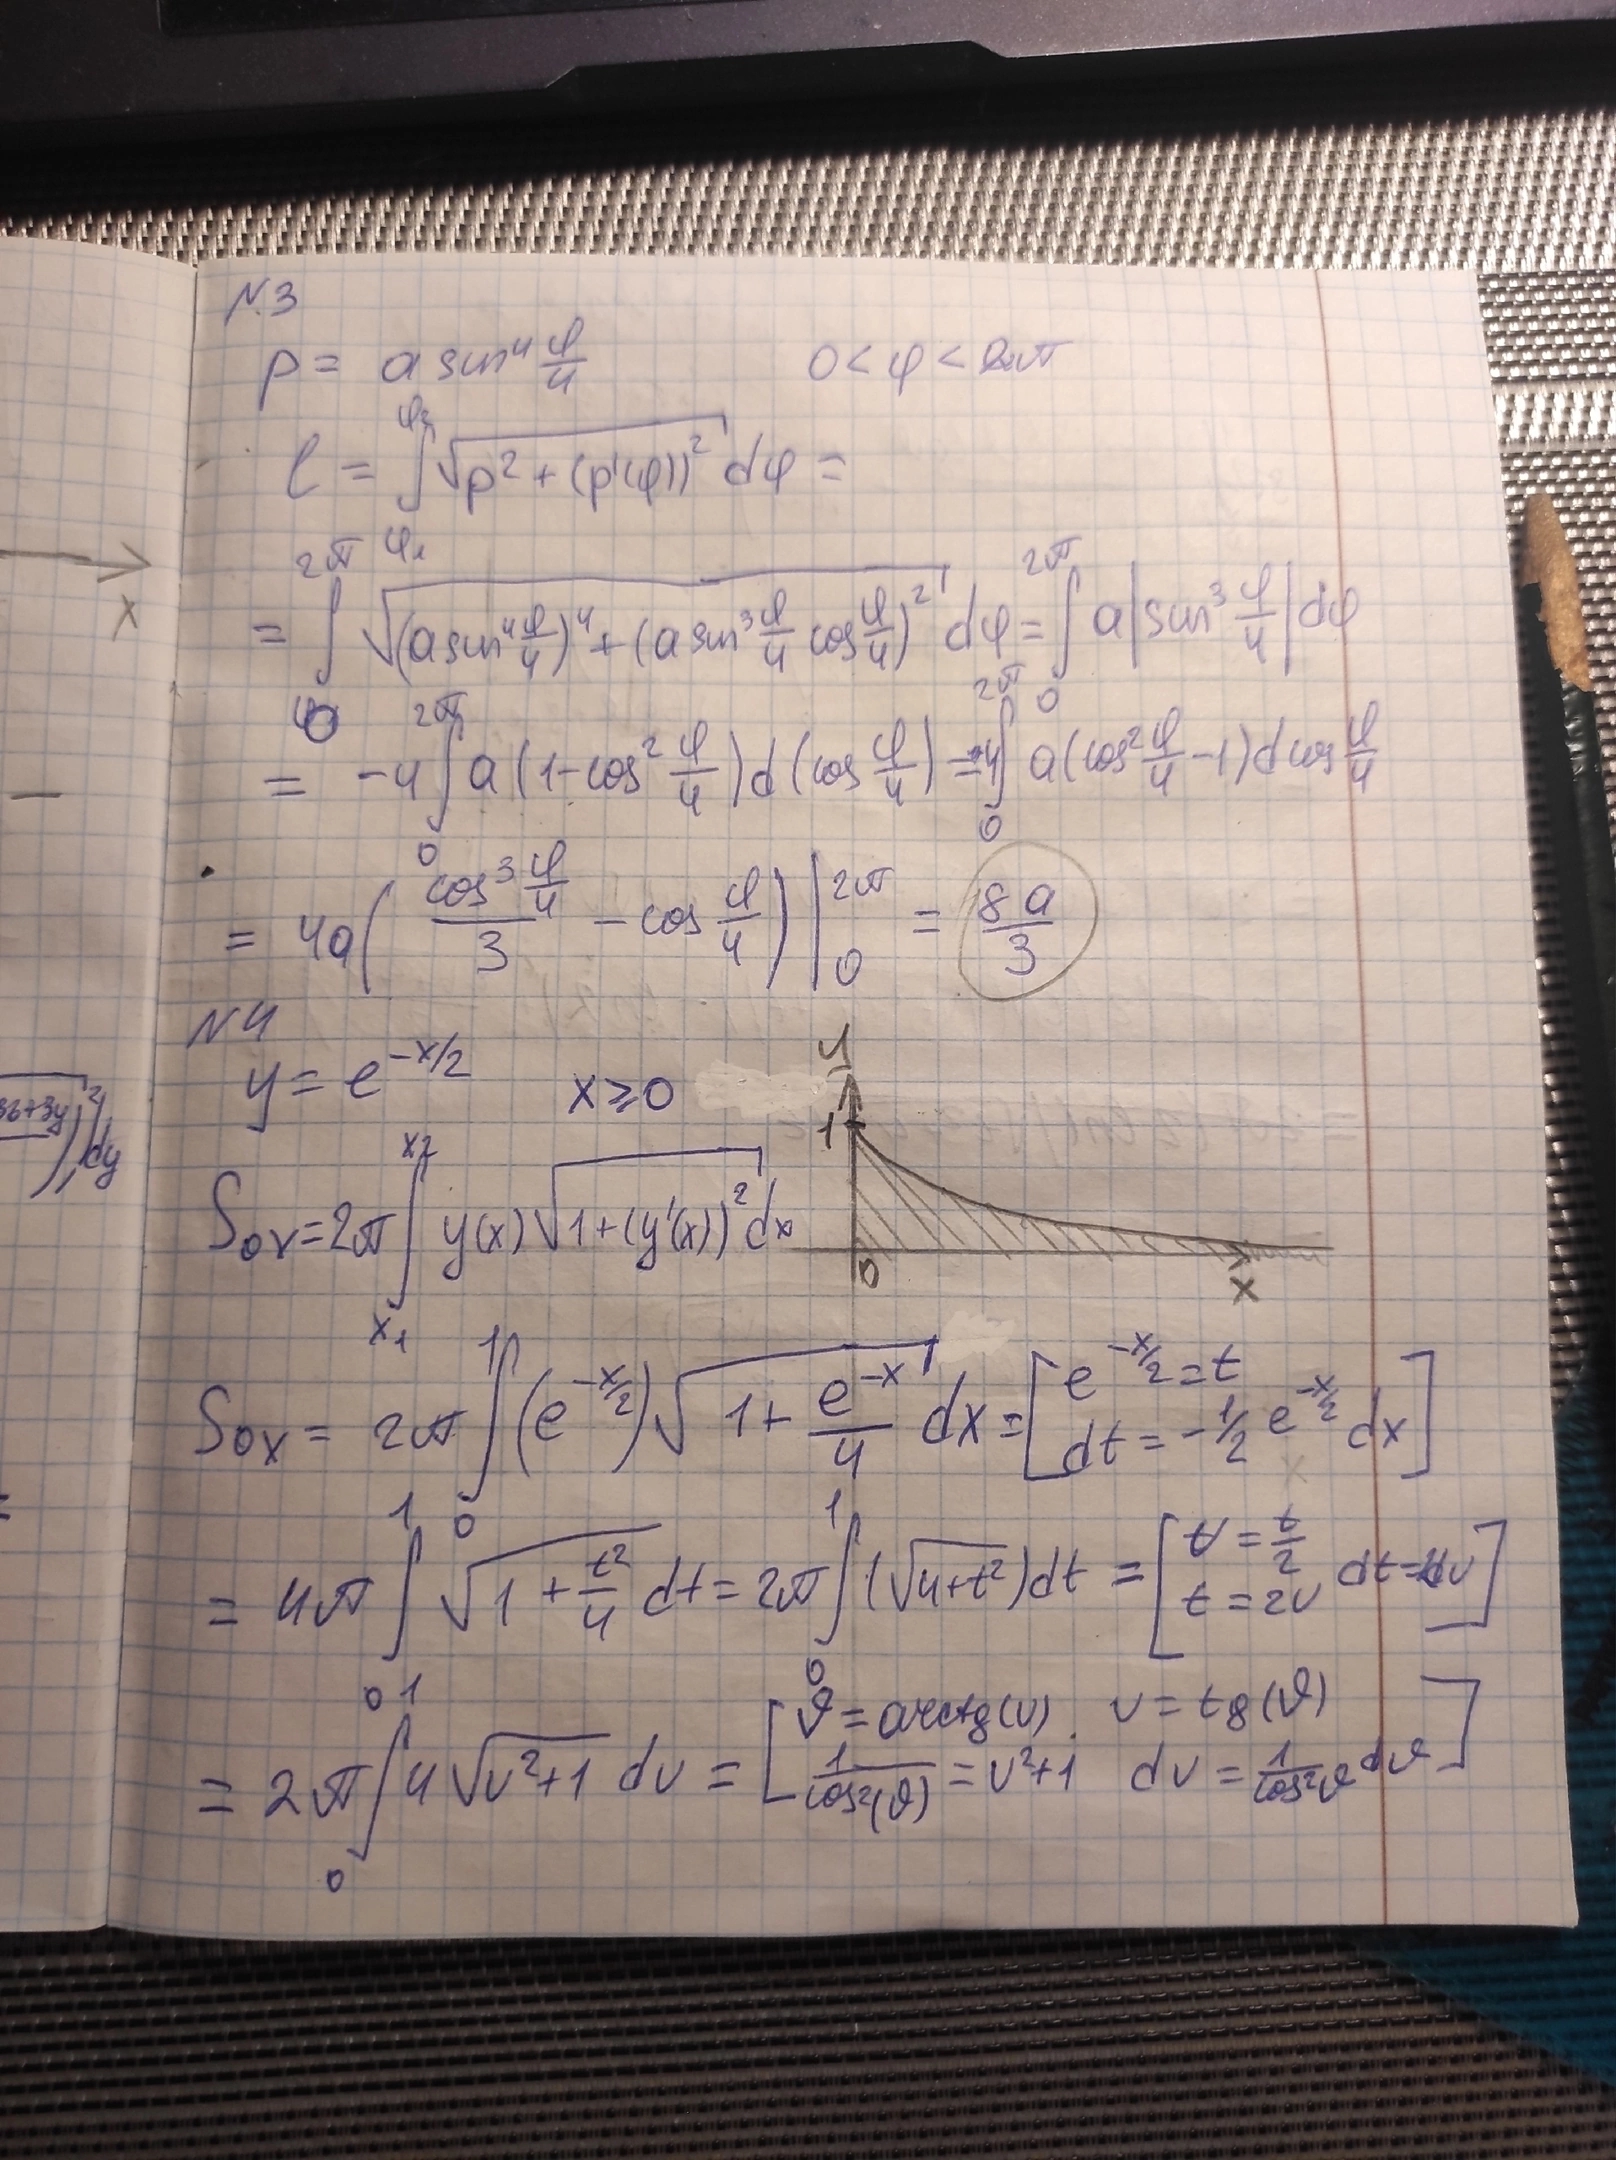 N.3
ρ = a sin⁴ φ/4   0 < φ < 2π
l = ∫_{φ₁}^{φ₂} √(ρ² + (ρ'(φ))²) dφ =
= ∫_0^{2π} √((a sin⁴ φ/4)⁴ + (a sin³ φ/4 cos φ/4)²) dφ = ∫_0^{2π} a|sin³ φ/4| dφ
= -4 ∫_0^{2π} a(1 - cos² φ/4) d(cos φ/4) = 4 ∫_0^{2π} a(cos² φ/4 - 1) d cos φ/4
= 4a( cos³ φ/4 / 3 - cos φ/4 ) |_0^{2π} = 8a/3
N4
y = e^{-x/2}   x ≥ 0
S_{ox} = 2π ∫_{x₁}^{x₂} y(x) √(1 + (y'(x))²) dx
y
1
0
x
S_{ox} = 2π ∫_0^1 (e^{-x/2}) √(1 + e^{-x}/4) dx = [e^{-x/2} = t
dt = -1/2 e^{-x/2} dx]
= 4π ∫_0^1 √(1 + t²/4) dt = 2π ∫_0^1 (√(4+t²)) dt = [v = t/2
t = 2v   dt = dv]
= 2π ∫_0^1 4√(v²+1) dv = [ϑ = arctg(v)   v = tg(ϑ)
1/cos²(ϑ) = v²+1   dv = 1/cos²ϑ dϑ]
x
dy